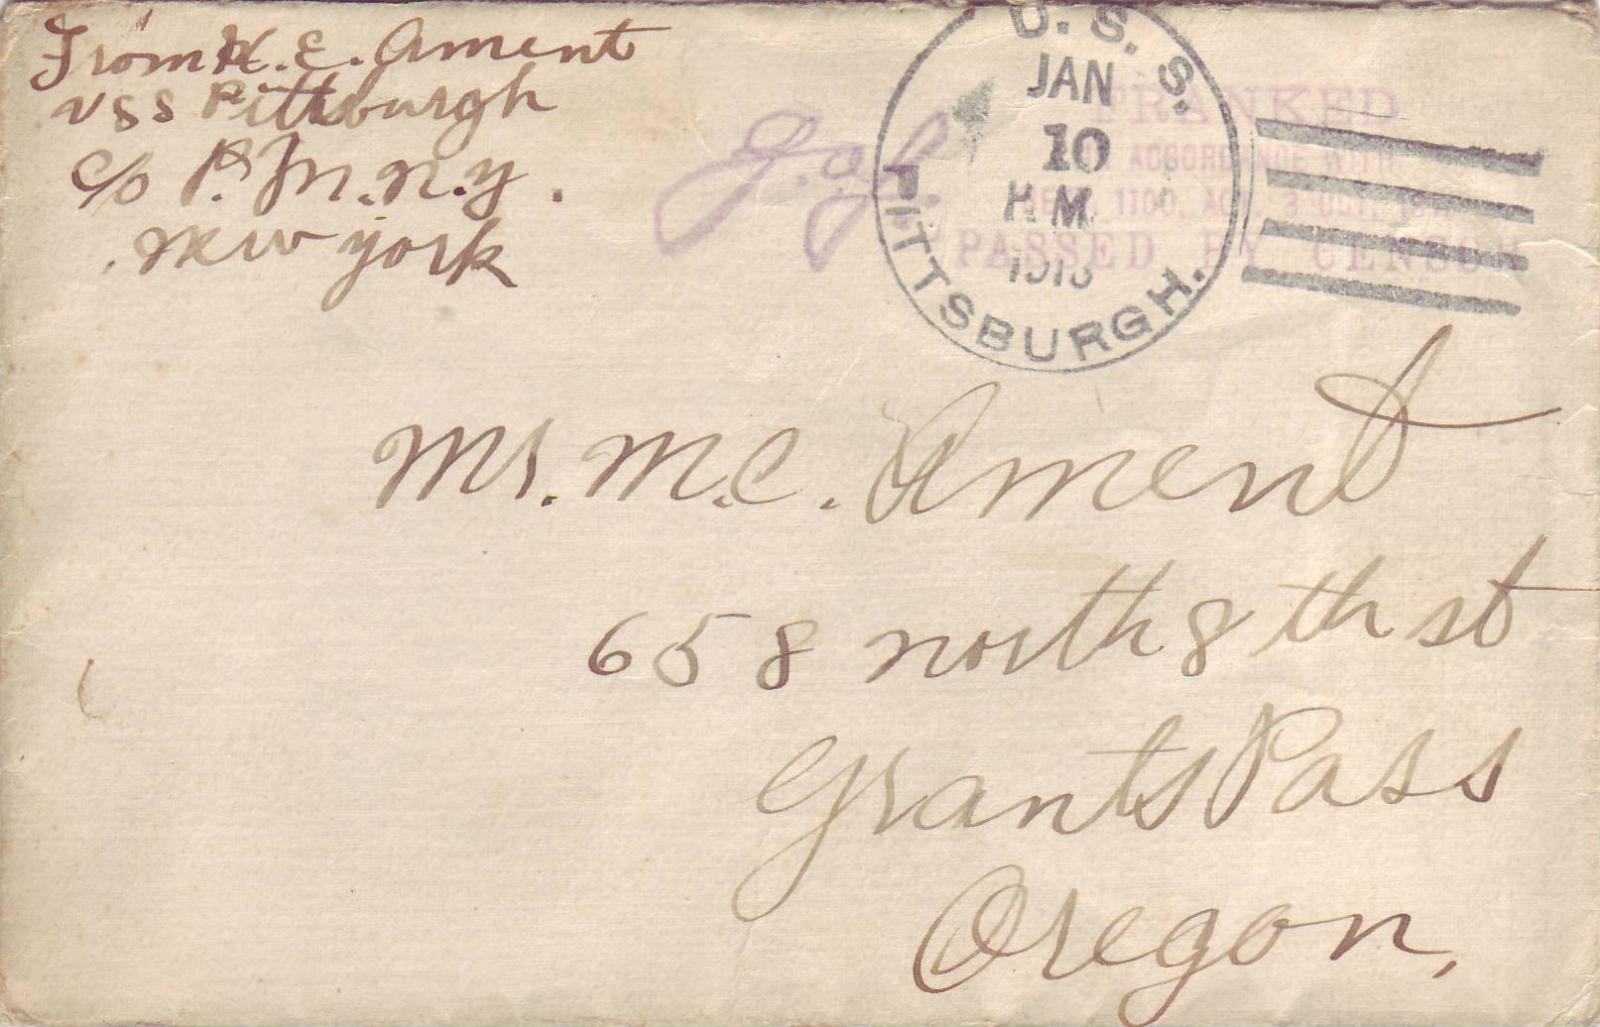 From H. E. Ament
USS Pittsburgh
c/o P. M. N. Y.
New York
U. S. S. PITTSBURGH.
JAN
10
M
FRANKED
ACCORDANCE WITH
1100, 3 OCT.
PASSED BY CENSOR
Mr. M. C. Ament
658 north 8 th st
Grants Pass
Oregon.